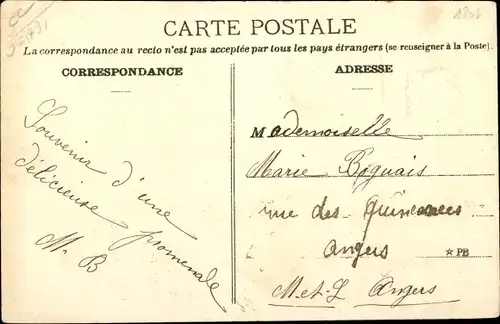 CARTE POSTALE
La correspondance au recto n'est pas acceptée par tous les pays étrangers (se renseigner à la Poste).
CORRESPONDANCE
Souvenir d'une
délicieuse promenade
M. B
ADRESSE
Mademoiselle
Marie Boguais
rue des
Angers
☆ PB
M-et-L Angers